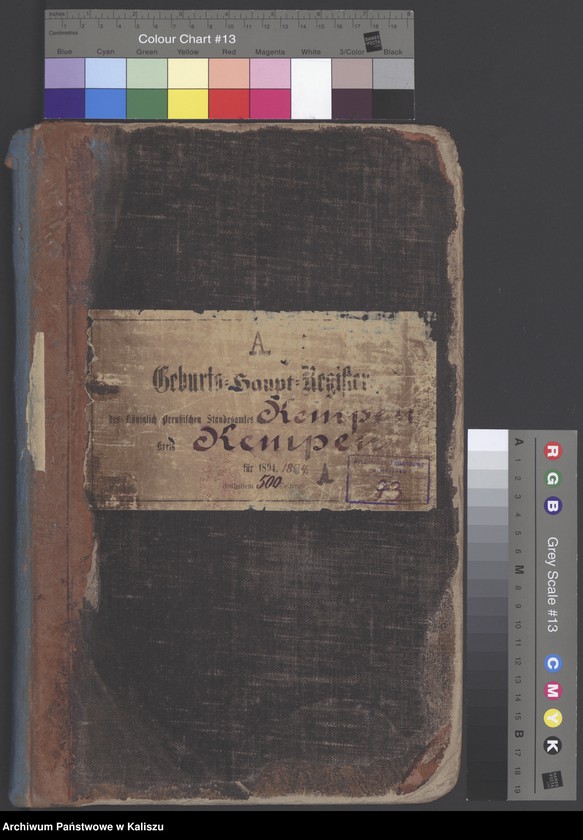 Inches
Centimetres
Colour Chart #13
Blue Cyan Green Yellow Red Magenta White 3/Color Black
A
Geburts-Haupt-Register
des Königlich Preußischen Standesamtes Kempen
Kreis Kempen
für 1894. 1894
500
A
93
R G B
Grey Scale #13
C M Y K
A 1 2 3 4 5 6 M 8 9 10 11 12 13 14 15 B 17 18 19
Archiwum Państwowe w Kaliszu